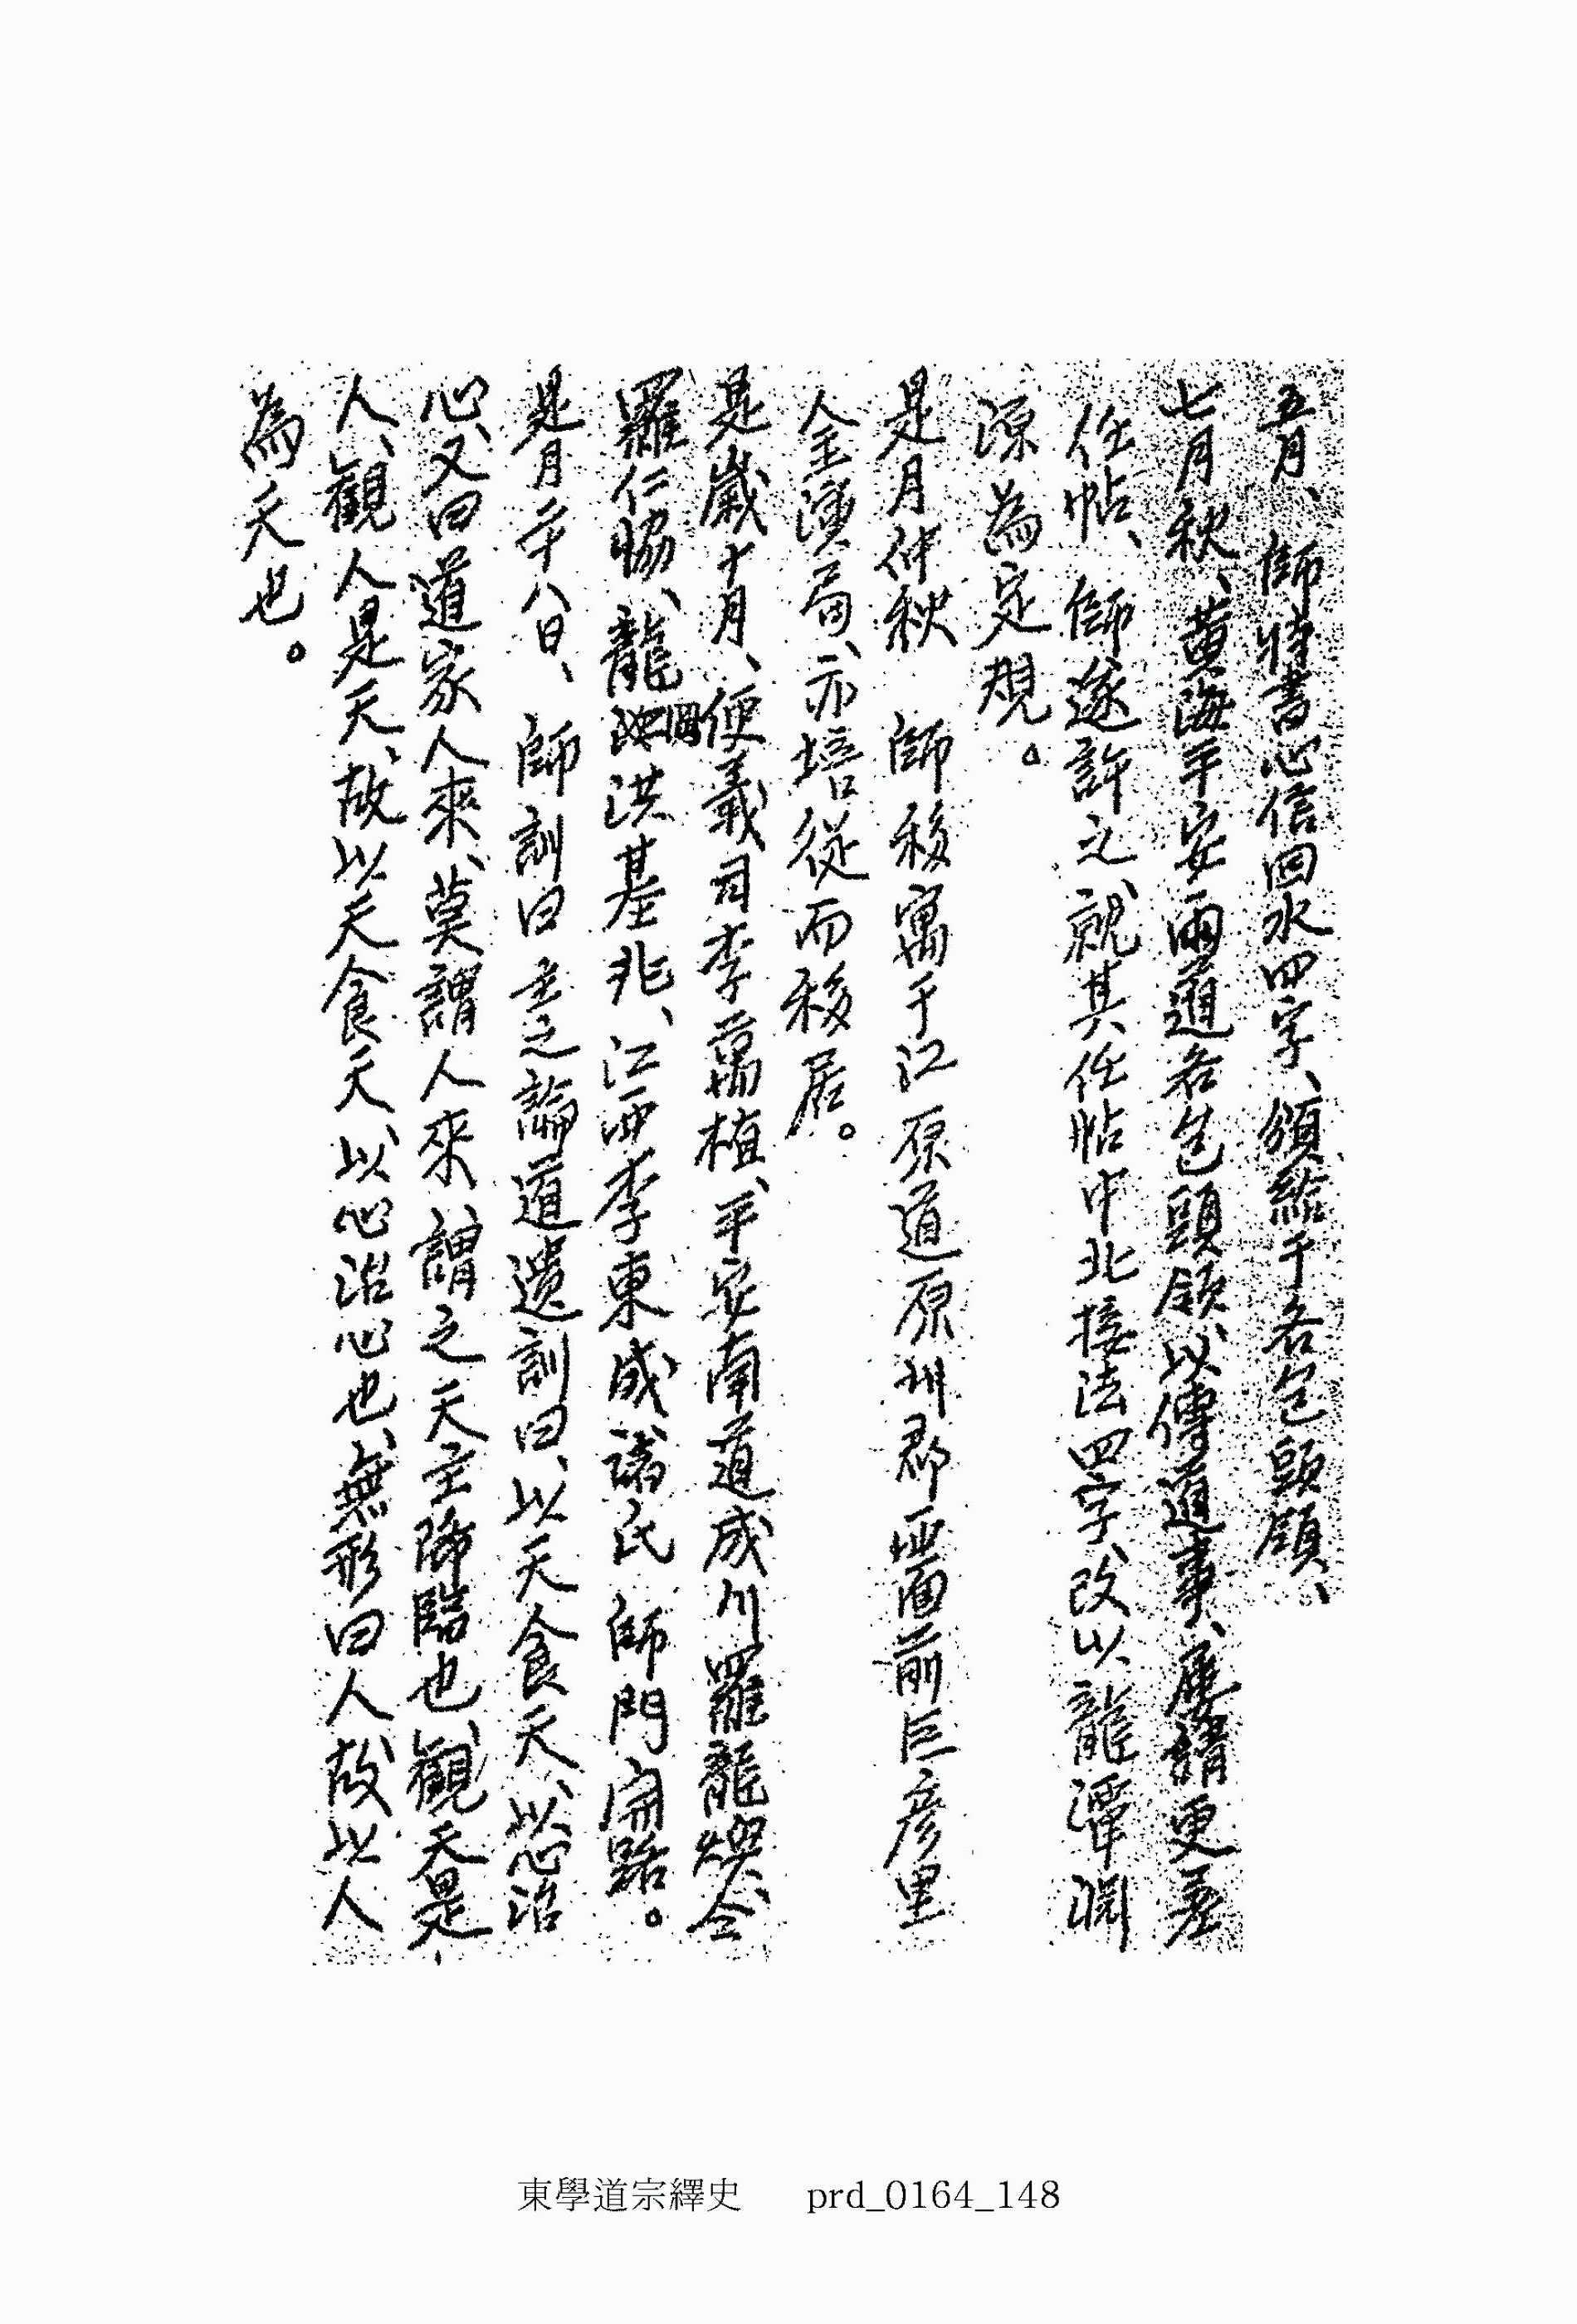 五月、 師特書心信回水四字、頒給于各包頭領、
七月秋、黃海平安兩道各包頭領、以傳道事、屢請更差
任帖、 師遂許之、就其任帖中北接法四字、改以龍潭淵
源為定規。
是月仲秋 師移寓于江原道原州郡 面前巨彦里
金演局、亦培從而移居。
是歲十月、便義司李萬植、平安南道成川羅龍燦、令
羅仁協、龍岡洪基兆、江西李東成諸氏 師門開路。
是月卄八日、 師訓曰 主之論道遺訓曰、以天食天、以心治
心、又曰道家人來、莫謂人來、謂之天主降臨也、觀天是
人、觀人是天、故以天食天、以心治心也、無形曰人故、以人
為天也。
東學道宗繹史 prd_0164_148